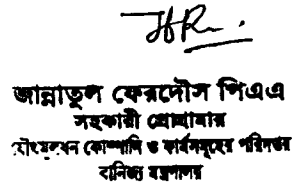 জান্নাতুল ফেরদৌস পিএএ
সহকারী প্রোগ্রামার
যৌথমূলধন কোম্পানি ও ফার্মসমূহের পরিদপ্তর
বানিজ্য মন্ত্রণালয়